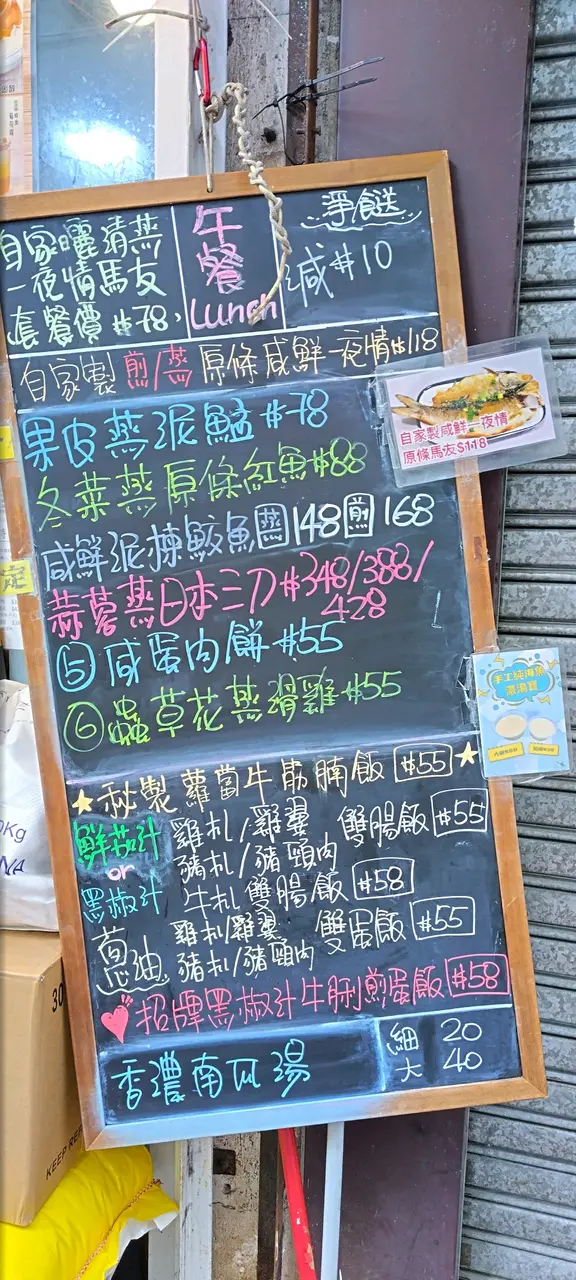 自家曬清蒸
一夜情馬友
套餐價 $78,
午
餐
Lunch
淨餸
減 $10
自家製 煎/蒸 原條咸鮮一夜情$118
自家製咸鮮一夜情
原條馬友$118
果皮蒸泥鯭 $78
冬菜蒸原條紅魚$88
咸鮮泥揀鮫魚 蒸 148 煎 168
蒜蓉蒸日本三刀 $348/388/
428
⑤ 咸蛋肉餅 $55
⑥ 蟲草花蒸滑雞 $55
手工純海魚
濃湯寶
定
★秘製蘿蔔牛肋腩飯 $55 ★
鮮茄汁
or
黑椒汁
雞扎/雞翼
豬扎/豬頸肉 雙腸飯 $55
牛扎 雙腸飯 $58
蔥油
雞扎/雞翼
豬扎/豬頸肉 雙蛋飯 $55
招牌黑椒汁牛脷煎蛋飯 $58
香濃南瓜湯
細 20
大 40
0Kg
NA
30